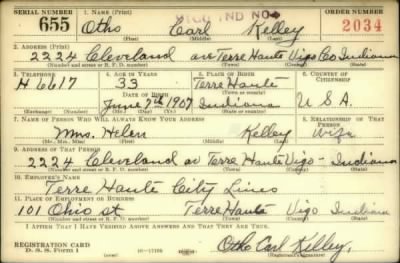 SERIAL NUMBER 1. NAME (Print) ORDER NUMBER
655 Otho Carl Kelley 2034
(First) (Middle) (Last)
2. ADDRESS (Print)
2224 Cleveland av Terre Haute Vigo Co Indiana
(Number and street or R. F. D. number) (Town) (County) (State)
3. TELEPHONE 4. AGE IN YEARS 5. PLACE OF BIRTH 6. COUNTRY OF CITIZENSHIP
H 6617 33 Terre Haute
DATE OF BIRTH (Town or county)
June 7th 1907 Indiana U S A
(Exchange) (Number) (Mo.) (Day) (Yr.) (State or country)
7. NAME OF PERSON WHO WILL ALWAYS KNOW YOUR ADDRESS 8. RELATIONSHIP OF THAT PERSON
Mrs. Helen Kelley Wife
(Mr., Mrs., Miss) (First) (Middle) (Last)
9. ADDRESS OF THAT PERSON
2224 Cleveland av Terre Haute Vigo - Indiana
(Number and street or R. F. D. number) (Town) (County) (State)
10. EMPLOYER'S NAME
Terre Haute City Lines
11. PLACE OF EMPLOYMENT OR BUSINESS
101 Ohio st Terre Haute Vigo Indiana
(Number and street or R. F. D. number) (Town) (County) (State)
I AFFIRM THAT I HAVE VERIFIED ABOVE ANSWERS AND THAT THEY ARE TRUE.
REGISTRATION CARD
D. S. S. Form 1 16-17105 Otho Carl Kelley.